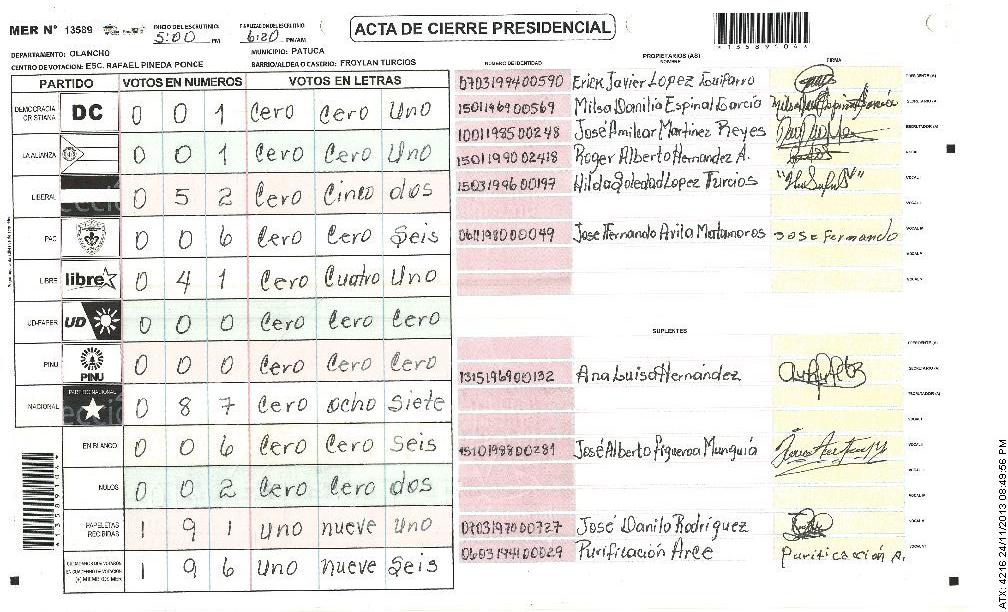 MER N° 13589
INICIO DEL ESCRUTINIO 5:00 PM
FINALIZACION DEL ESCRUTINIO 6:20 PM/AM
ACTA DE CIERRE PRESIDENCIAL
*13589104*
DEPARTAMENTO: OLANCHO MUNICIPIO: PATUCA
CENTRO DE VOTACION: ESC. RAFAEL PINEDA PONCE BARRIO/ALDEA O CASTRIO: FROYLAN TURCIOS
PARTIDO VOTOS EN NUMEROS VOTOS EN LETRAS
DEMOCRACIA CRISTIANA DC 0 0 1 Cero Cero Uno
LA ALIANZA 0 0 1 Cero Cero Uno
LIBERAL 0 5 2 Cero Cinco dos
PAC 0 0 6 Cero Cero Seis
LIBRE libre 0 4 1 Cero Cuatro Uno
UD-FAPER UD 0 0 0 Cero Cero Cero
PINU PINU 0 0 0 Cero Cero Cero
NACIONAL PARTIDO NACIONAL 0 8 7 Cero ocho Siete
EN BLANCO 0 0 6 Cero Cero Seis
NULOS 0 0 2 Cero Cero dos
PAPELETAS RECIBIDAS 1 9 1 uno nueve Uno
1 9 6 uno nueve Seis
NUMERO DE IDENTIDAD PROPIETARIOS (AS) NOMBRE FIRMA
0703199400590 Erick Javier Lopez PRESIDENTE (A)
1501196900569 Milsa Danilia Espinal Garcia SECRETARIO (A)
1001198500248 José Amilcar Martinez Reyes ESCRUTADOR (A)
1501199002418 Roger Alberto Hernandez A. VOCAL I
1503199600197 Hilda Soledad Lopez Turcios VOCAL II
VOCAL III
0611198000049 Jose Fernando Avila Matamoros Jose Fernando VOCAL IV
VOCAL V
SUPLENTES
PRESIDENTE (A)
1315196900132 Ana Luisa Hernández SECRETARIO (A)
ESCRUTADOR (A)
VOCAL I
1510198800281 José Alberto Figueroa Munguía VOCAL II
VOCAL III
VOCAL IV
0703197000727 José Danilo Rodríguez VOCAL V
Purificación Arce Purificación A. VOCAL VI
*13589104*
ATX: 4216 24/11/2013 08:49:56 PM